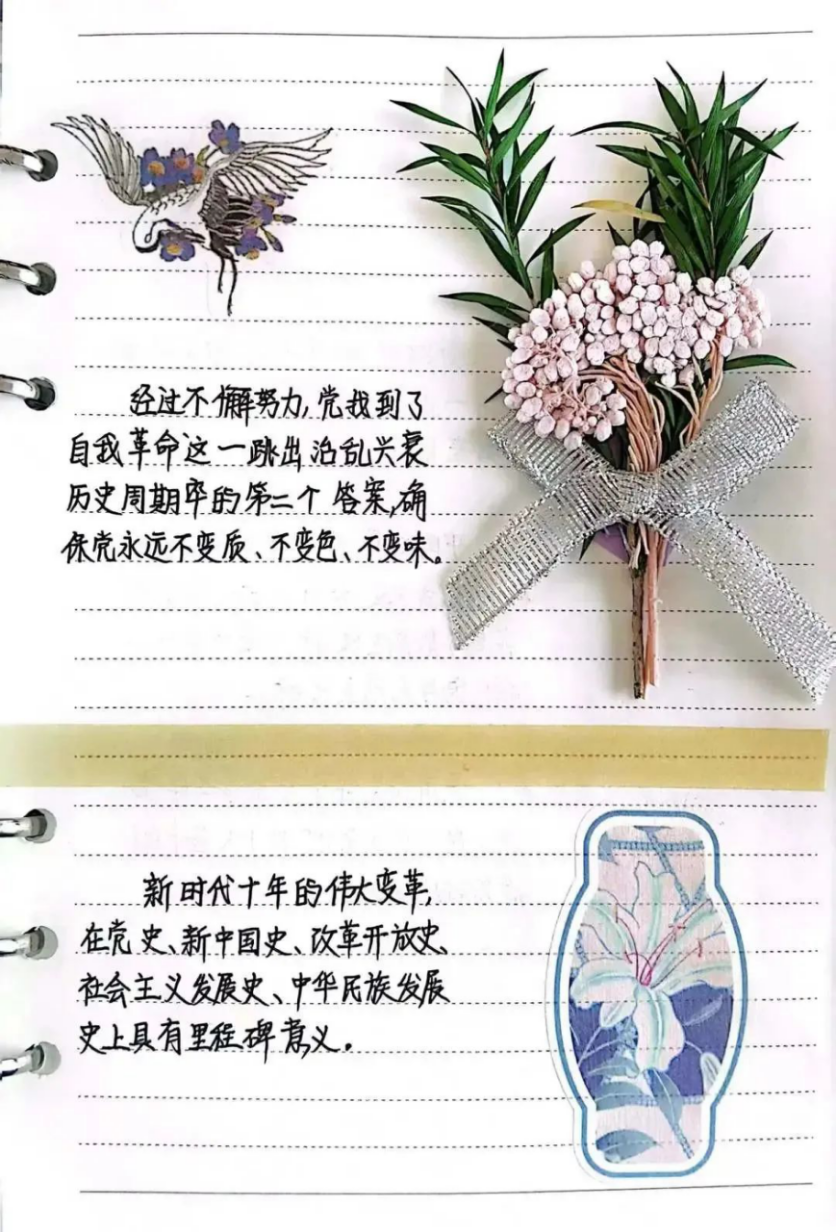 经过不懈努力,党找到了
自我革命这一跳出治乱兴衰
历史周期率的第二个答案,确
保党永远不变质、不变色、不变味。
新时代十年的伟大变革,
在党史、新中国史、改革开放史、
社会主义发展史、中华民族发展
史上具有里程碑意义。